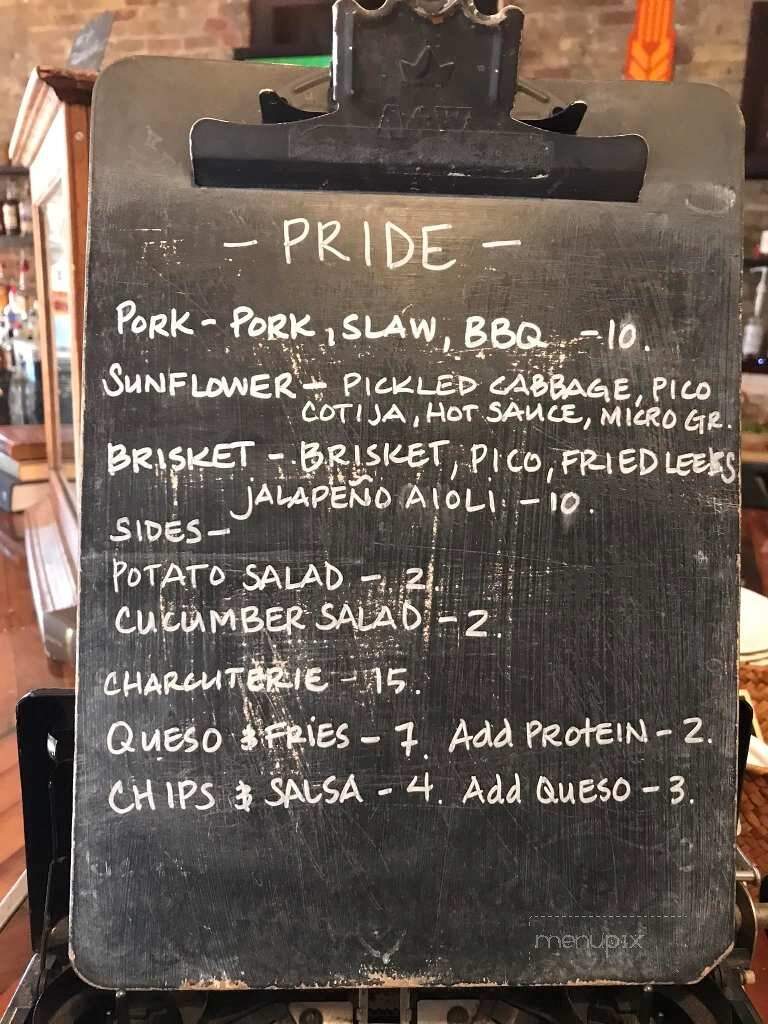 - PRIDE -
PORK - PORK, SLAW, BBQ - 10.
SUNFLOWER - PICKLED CABBAGE, PICO
COTIJA, HOT SAUCE, MICRO GR.
BRISKET - BRISKET, PICO, FRIED LEEKS
JALAPEÑO AIOLI - 10.
SIDES -
POTATO SALAD - 2.
CUCUMBER SALAD - 2.
CHARCUTERIE - 15.
QUESO & FRIES - 7. Add PROTEIN - 2.
CHIPS & SALSA - 4. Add QUESO - 3.
menupix